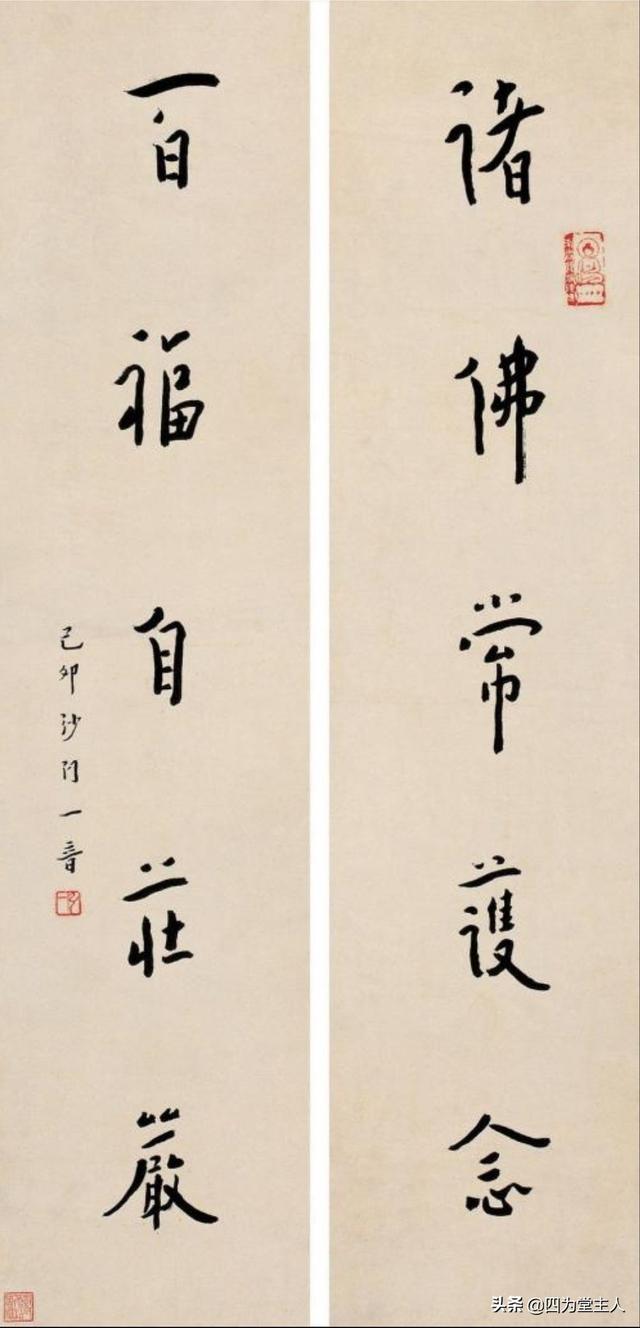 諸佛常護念
百福自莊嚴
己卯沙門一音
头条 @四为堂主人